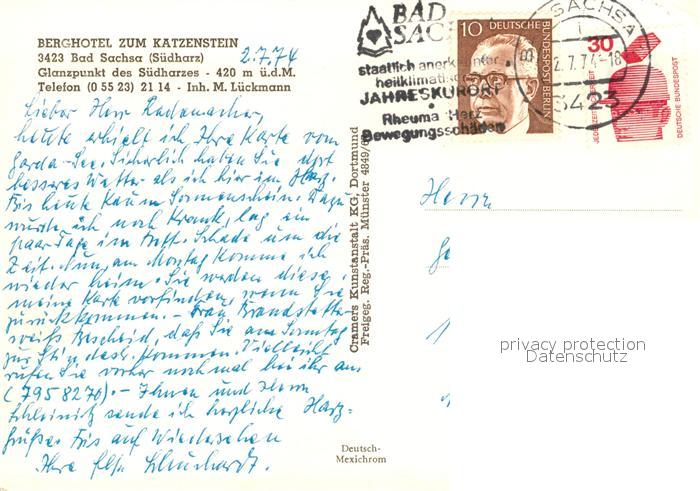 BERGHOTEL ZUM KATZENSTEIN
3423 Bad Sachsa (Südharz)
Glanzpunkt des Südharzes - 420 m ü.d.M.
Telefon (0 55 23) 21 14 - Inh. M. Lückmann
2.7.74
Lieber Herr Rademacher,
heute erhielt ich Ihre Karte vom
Garda-See. Sicherlich haben Sie dort
besseres Wetter als ich hier im Harz.
Bis heute kaum Sonnenschein. Dazu
wurde ich noch krank, lag ein
paar Tage im Bett. Schade um die
Zeit. Nun, am Montag komme ich
wieder heim. Sie werden diese
meine Karte vorfinden, wenn Sie
zurückkommen. - Frau Brandstetter
weiß Bescheid, daß Sie am Sonntag
zur kommen. Vielleicht
rufen Sie vorher noch mal bei ihr an
(795 82 70). - Ihnen und Herrn
Schleinitz sende ich herzliche Harz-
grüße. Bis auf Wiedersehen
Ihre Else
Cramers Kunstanstalt KG, Dortmund
Freigeg. Reg.-Präs. Münster
Deutsch-
Mexichrom
BAD
SACHSA
staatlich anerkannter
heilklimatischer
JAHRESKURORT
Rheuma Herz
Bewegungsschäden
10 DEUTSCHE BUNDESPOST BERLIN
30
JEDERZEIT SICHERHEIT
DEUTSCHE BUNDESPOST
BAD SACHSA
2.7.74-18
3423
Herrn
privacy protection
Datenschutz